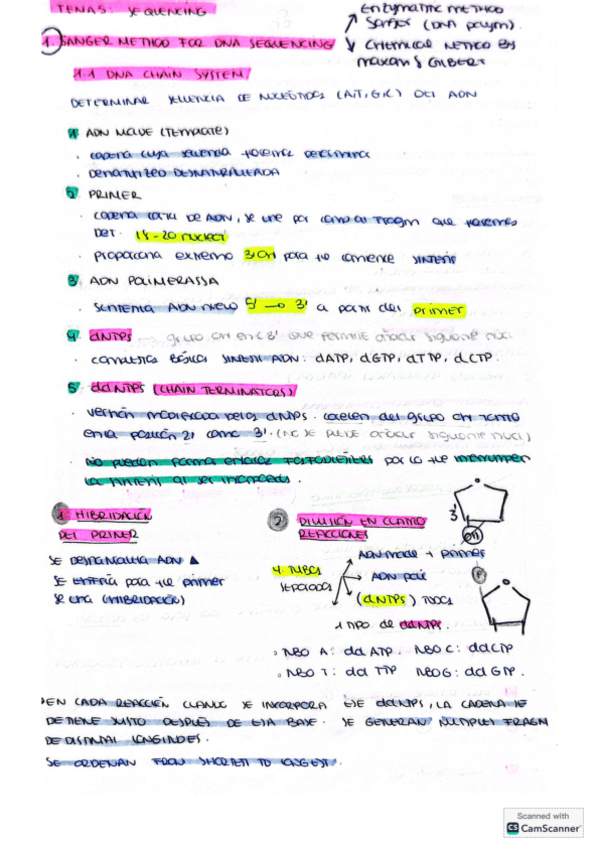 TEMA 5: SEQUENCING
ENZYMATIC METHOD
Sanger (DNA polym).
CHEMICAL METHOD BY
MAXAM & GILBERT
1. SANGER METHOD FOR DNA SEQUENCING
1.1 DNA CHAIN SYSTEM
DETERMINAR SECUENCIA DE NUCLEÓTIDOS (A,T,G,C) DEL ADN
1 ADN MOLDE (TEMPLATE)
· cadena cuya secuencia queremos determinar
· DENATURIZED DESNATURALIZADA
2 PRIMER
· cadena corta de ADN, se une por comp al fragm que queremos
DET. 18-20 nucleot
· proporciona extremo 3'OH para que comience SINTESIS
3 ADN POLIMERASSA
· sintetiza ADN nuevo 5' → 3' a partir del primer
4 dNTPs → grupo OH en el 3' que permite añadir siguiente nucl
· complejos básicos SINTESIS ADN: dATP, dGTP, dTTP, dCTP.
5. ddNTPS (CHAIN TERMINATORS)
· versión modificada de los dNTPs. carecen del grupo OH tanto
en la posición 2' como 3'. (NO SE PUEDE añadir siguiente nucl)
· No pueden formar enlaces FOSFODIÉSTER por lo que interrumpen
la síntesis al ser incorporados.
1. HIBRIDACIÓN
DEL PRIMER
SE DESNATURALIZA ADN
SE ENFRÍA para que primer
se una (HIBRIDACIÓN)
2 DIVISIÓN EN CUATRO
REACCIONES
4 TUBOS
SEPARADOS
ADN molde + primer
ADN pol
(dNTPS) TODOS
1 TIPO de ddNTPS.
3'
OH
· TUBO A: ddATP. TUBO C: ddCTP
· TUBO T: dd TTP TUBO G: dd GTP.
EN CADA REACCIÓN CUANDO SE INCORPORA ESE ddNTPS, LA CADENA SE
DETIENE JUSTO DESPUÉS DE ESA BASE. SE GENERAN MÚLTIPLES FRAGM
DE DISTINTAS LONGITUDES.
SE ORDENAN FROM SHORTEST TO LONGEST.
Scanned with
CS CamScanner